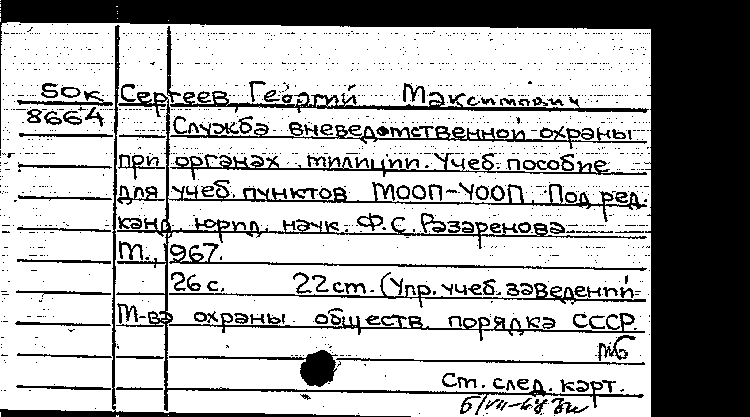 50к Сергеев, Георгий Максимович
8664
Служба вневедомственной охраны
при органах милиции. Учеб. пособие
для учеб. пунктов МООП-УООП. Под ред.
канд. юрид. наук Ф.С. Разаренова
М., 967.
26 с. 22 см. (Упр. учеб. заведений
М-ва охраны обществ. порядка СССР.
мб
См. след. карт.